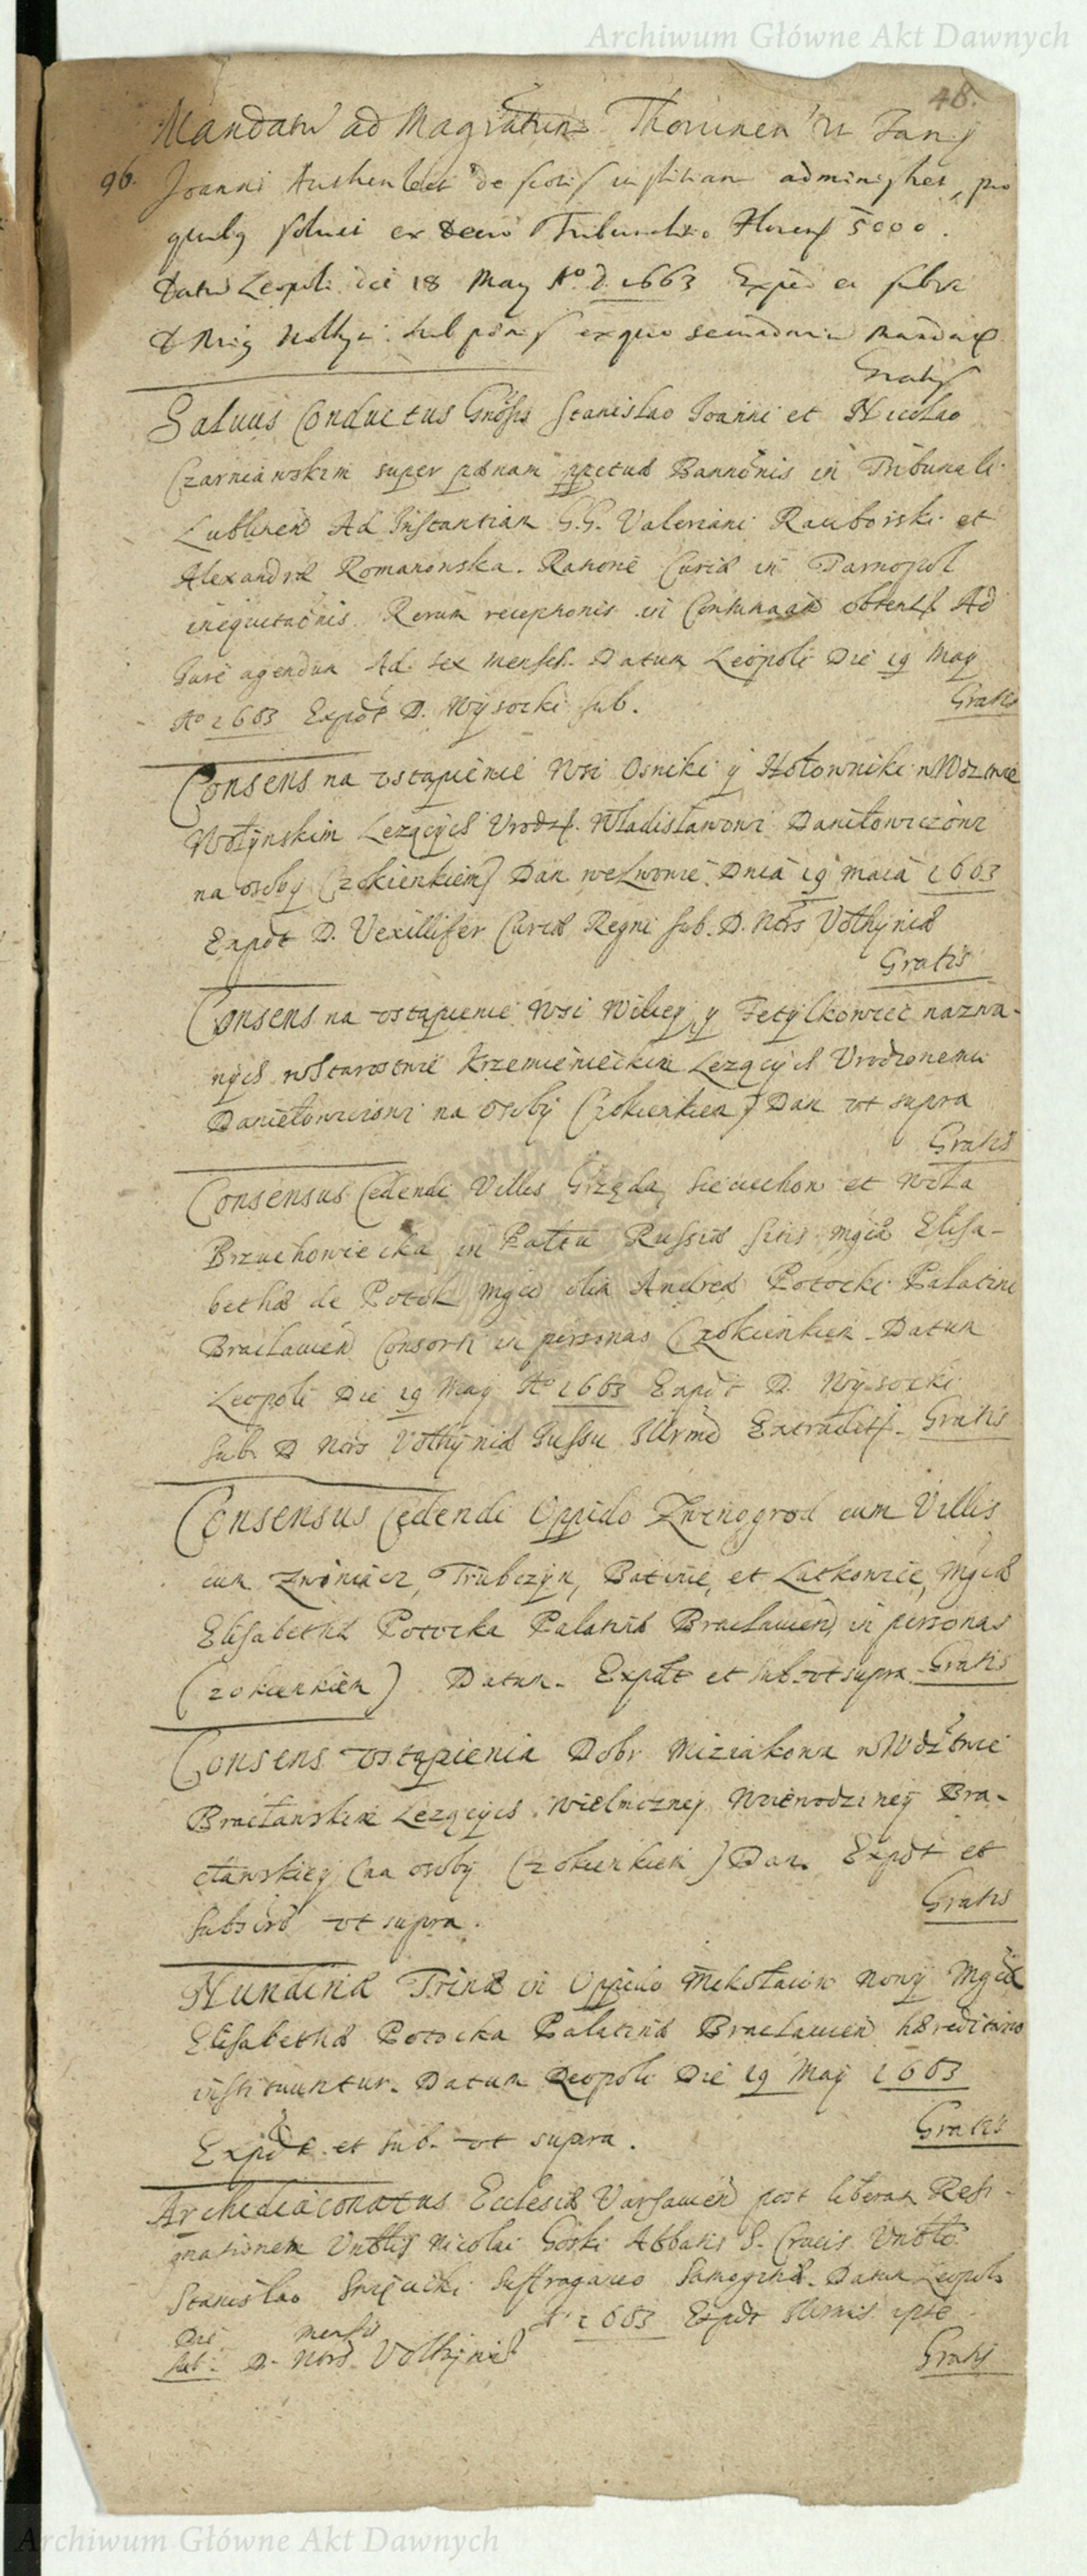 Archiwum Główne Akt Dawnych
48.
Mandatu ad Magratum Thorunen ut
96. Joanni de administret, pro
solui ex Tribunali Floren 5000.
Datu Leopoli die 18 May Aº D. 1663 Exped
ex quo Mandat
Gratis
Saluus Conductus Gnosis Stanislao Joanni et Nicolao
Czarnianskim super pænam ppetuæ Bannonis in Tribunali
Lublinen Ad Instantiam G.G. Valeriani Raciborski et
Alexandræ Romanowska. Ratione Curiæ in Tarnopol
inequitaonis Rerum receptionis in Contumaam obtent. Ad
Jure agendum Ad sex menses. Datum Leopoli Die 19 May
Aº 1663 Expdt D. Wysocki sub.
Gratis
Consens na ustąpienie Wsi Osniki y Hołowniki w Wdztwie
Wołynskim Lezących Urodz. Władisławowi Daniłowiczowi
na osoby (zokienkiem) Dan we Lwowie Dnia 19 Maia 1663
Expdt D. Vexillifer Curiæ Regni sub. D. Nors Volhyniæ
Gratis
Consens na ustąpienie Wsi Wiliey y Fetylkowiec nazwa-
nych w Starostwie Krzemienieckim Lezących Urodzonemu
Daniełowiczowi na osoby (zokienkiem) Dan ut supra
Gratis
Consensus Cedendi Villis Grzęda, Sieciechow et Wola
Brzuchowiecka in Pałtu Russiæ sitis Mgcæ Elisa-
bethæ de Potok Mgci olim Andreæ Potocki Palatini
Bracłauien Consorti in personas (zokienkiem Datum
Leopoli Die 19 May Aº 1663 Expdt D. Wysocki
sub D Nors Volhyniæ Jussu Illrmo Extradit. Gratis
Consensus Cedendi Oppido Zwinogrod cum Villis
cum Zwiniacz, Trubczyn, Boticie, et Latkowce, Mgcæ
Elisabethæ Potocka Palatinæ Bracłauien, in personas
(zokienkiem) Datum. Expdt et sub. ut supra. Gratis
Consens ustąpienia Dobr Miziakowa w Wdztwie
Bracławskim Lezących Wielmozney Woiewodziney Bra-
cławskiey (na osoby (zokienkiem) Dan. Expdt et
subscrb ut supra.
Gratis
Nundinæ Trinæ in Oppido Mikołaiow Nowy Mgcæ
Elisabethæ Potocka Palatinæ Bracłauien hæreditario
instituuntur. Datum Leopoli Die 19 May 1663
Expdt et sub. ut supra.
Gratis
Archidiaconatus Ecclesiæ Varsauien post liberam Resi-
gnationem Vnblis Nicolai Goski Abbatis S. Crucis Vnbło
Stanislao Swięcicki Suffraganeo Samogitiæ. Datum Leopoli
Die mensis Aº 1663 Expdt Illrmus ipse
sub. D. Nors Volhyniæ
Gratis
Archiwum Główne Akt Dawnych